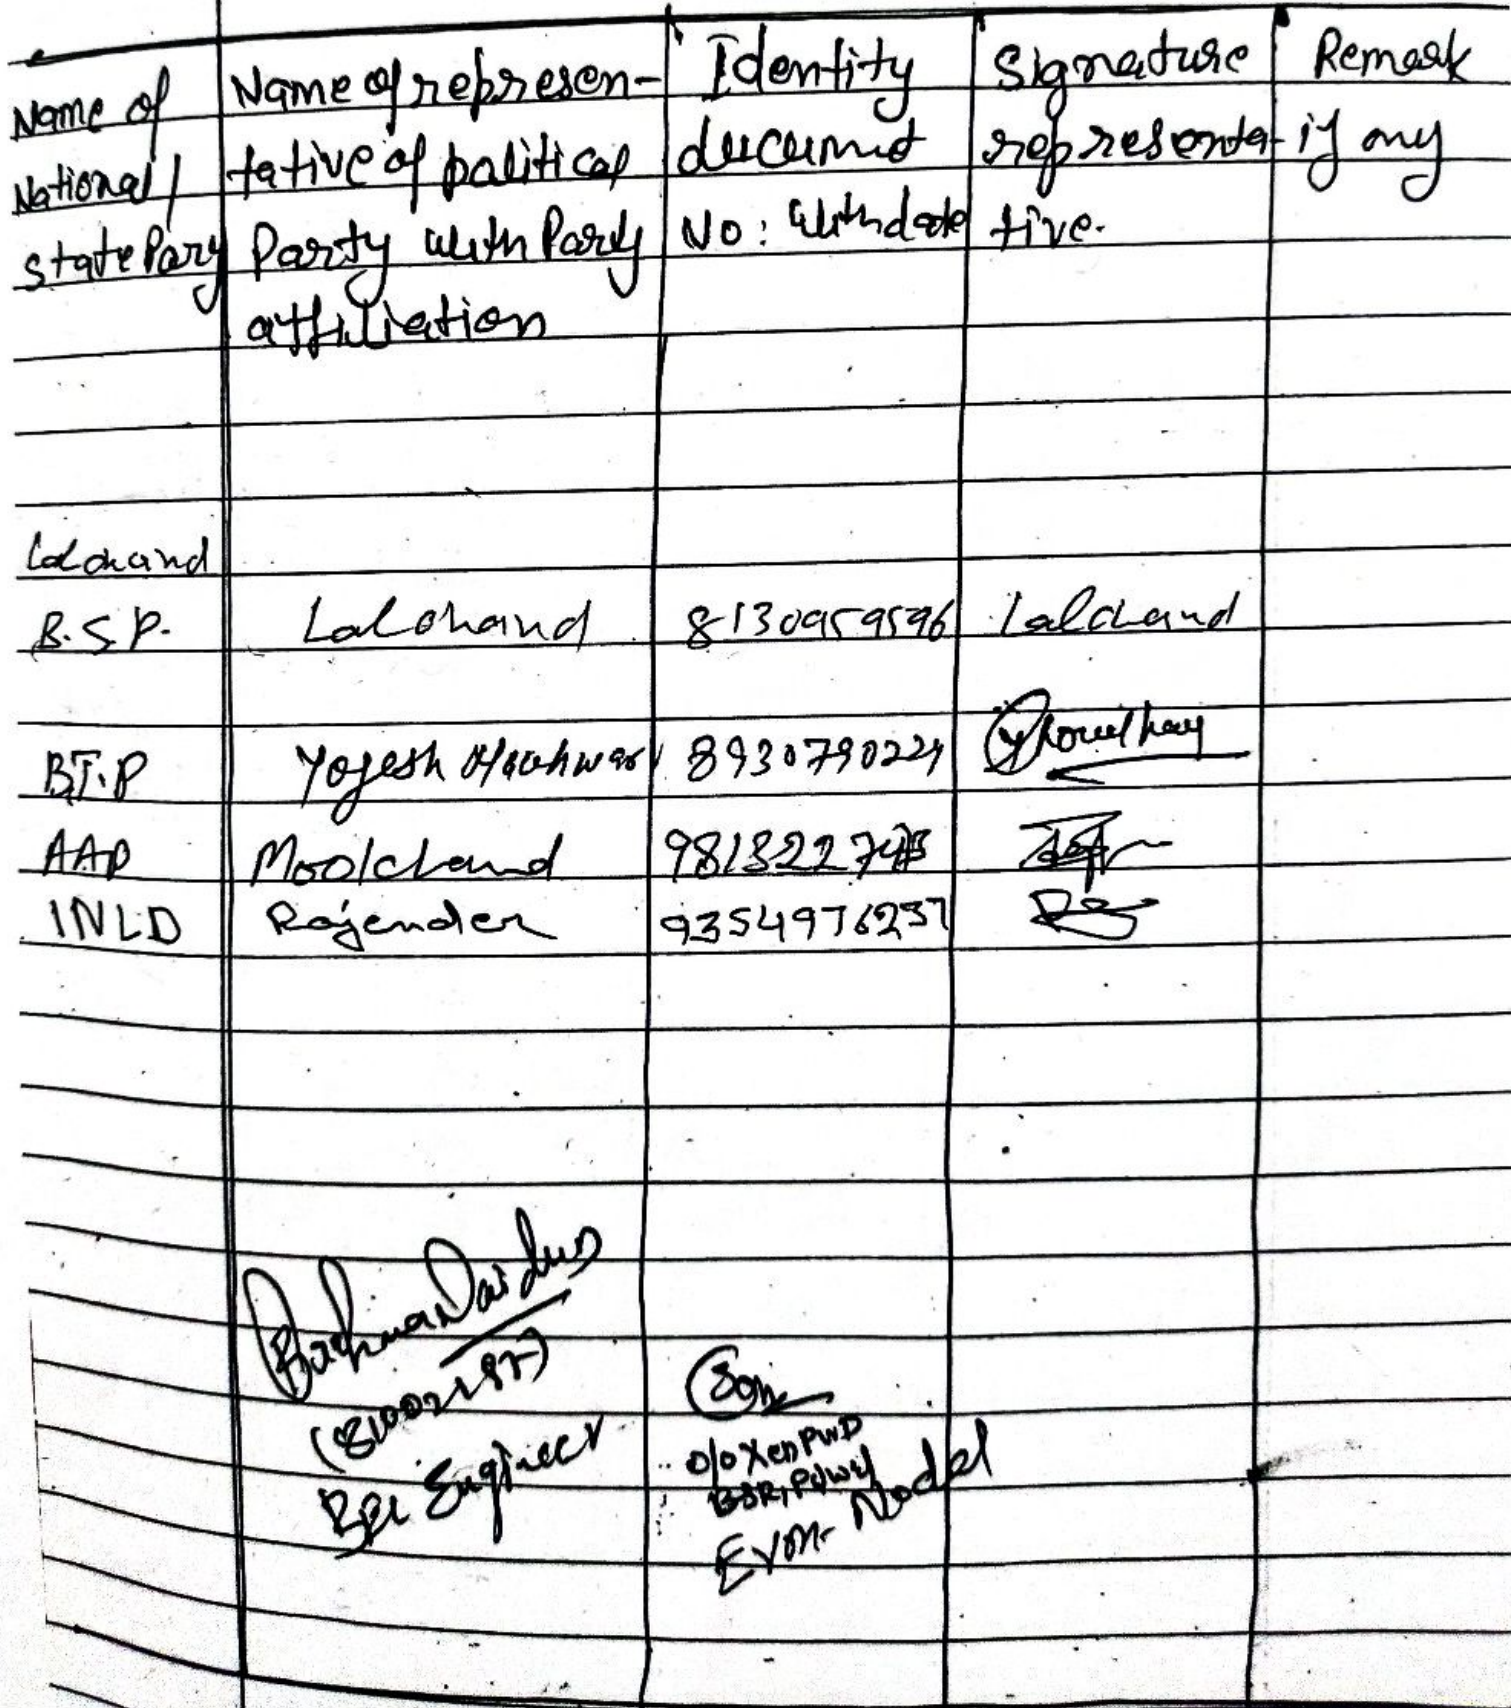 Name of National/ State Pary | Name of represen-tative of palitical Party with Party affiliation | Identity document No: with date | Signature representa-tive. | Remark if any
Lalchand
B.S.P. | Lalchand | 8130959596 | Lalchand
BJ.P | Yogesh | 8930790224 | Choudhary
AAP | Moolchand
INLD | Rajender | 9354976237
BEL Engineer
O/o Xen PWD
EVM Nodal